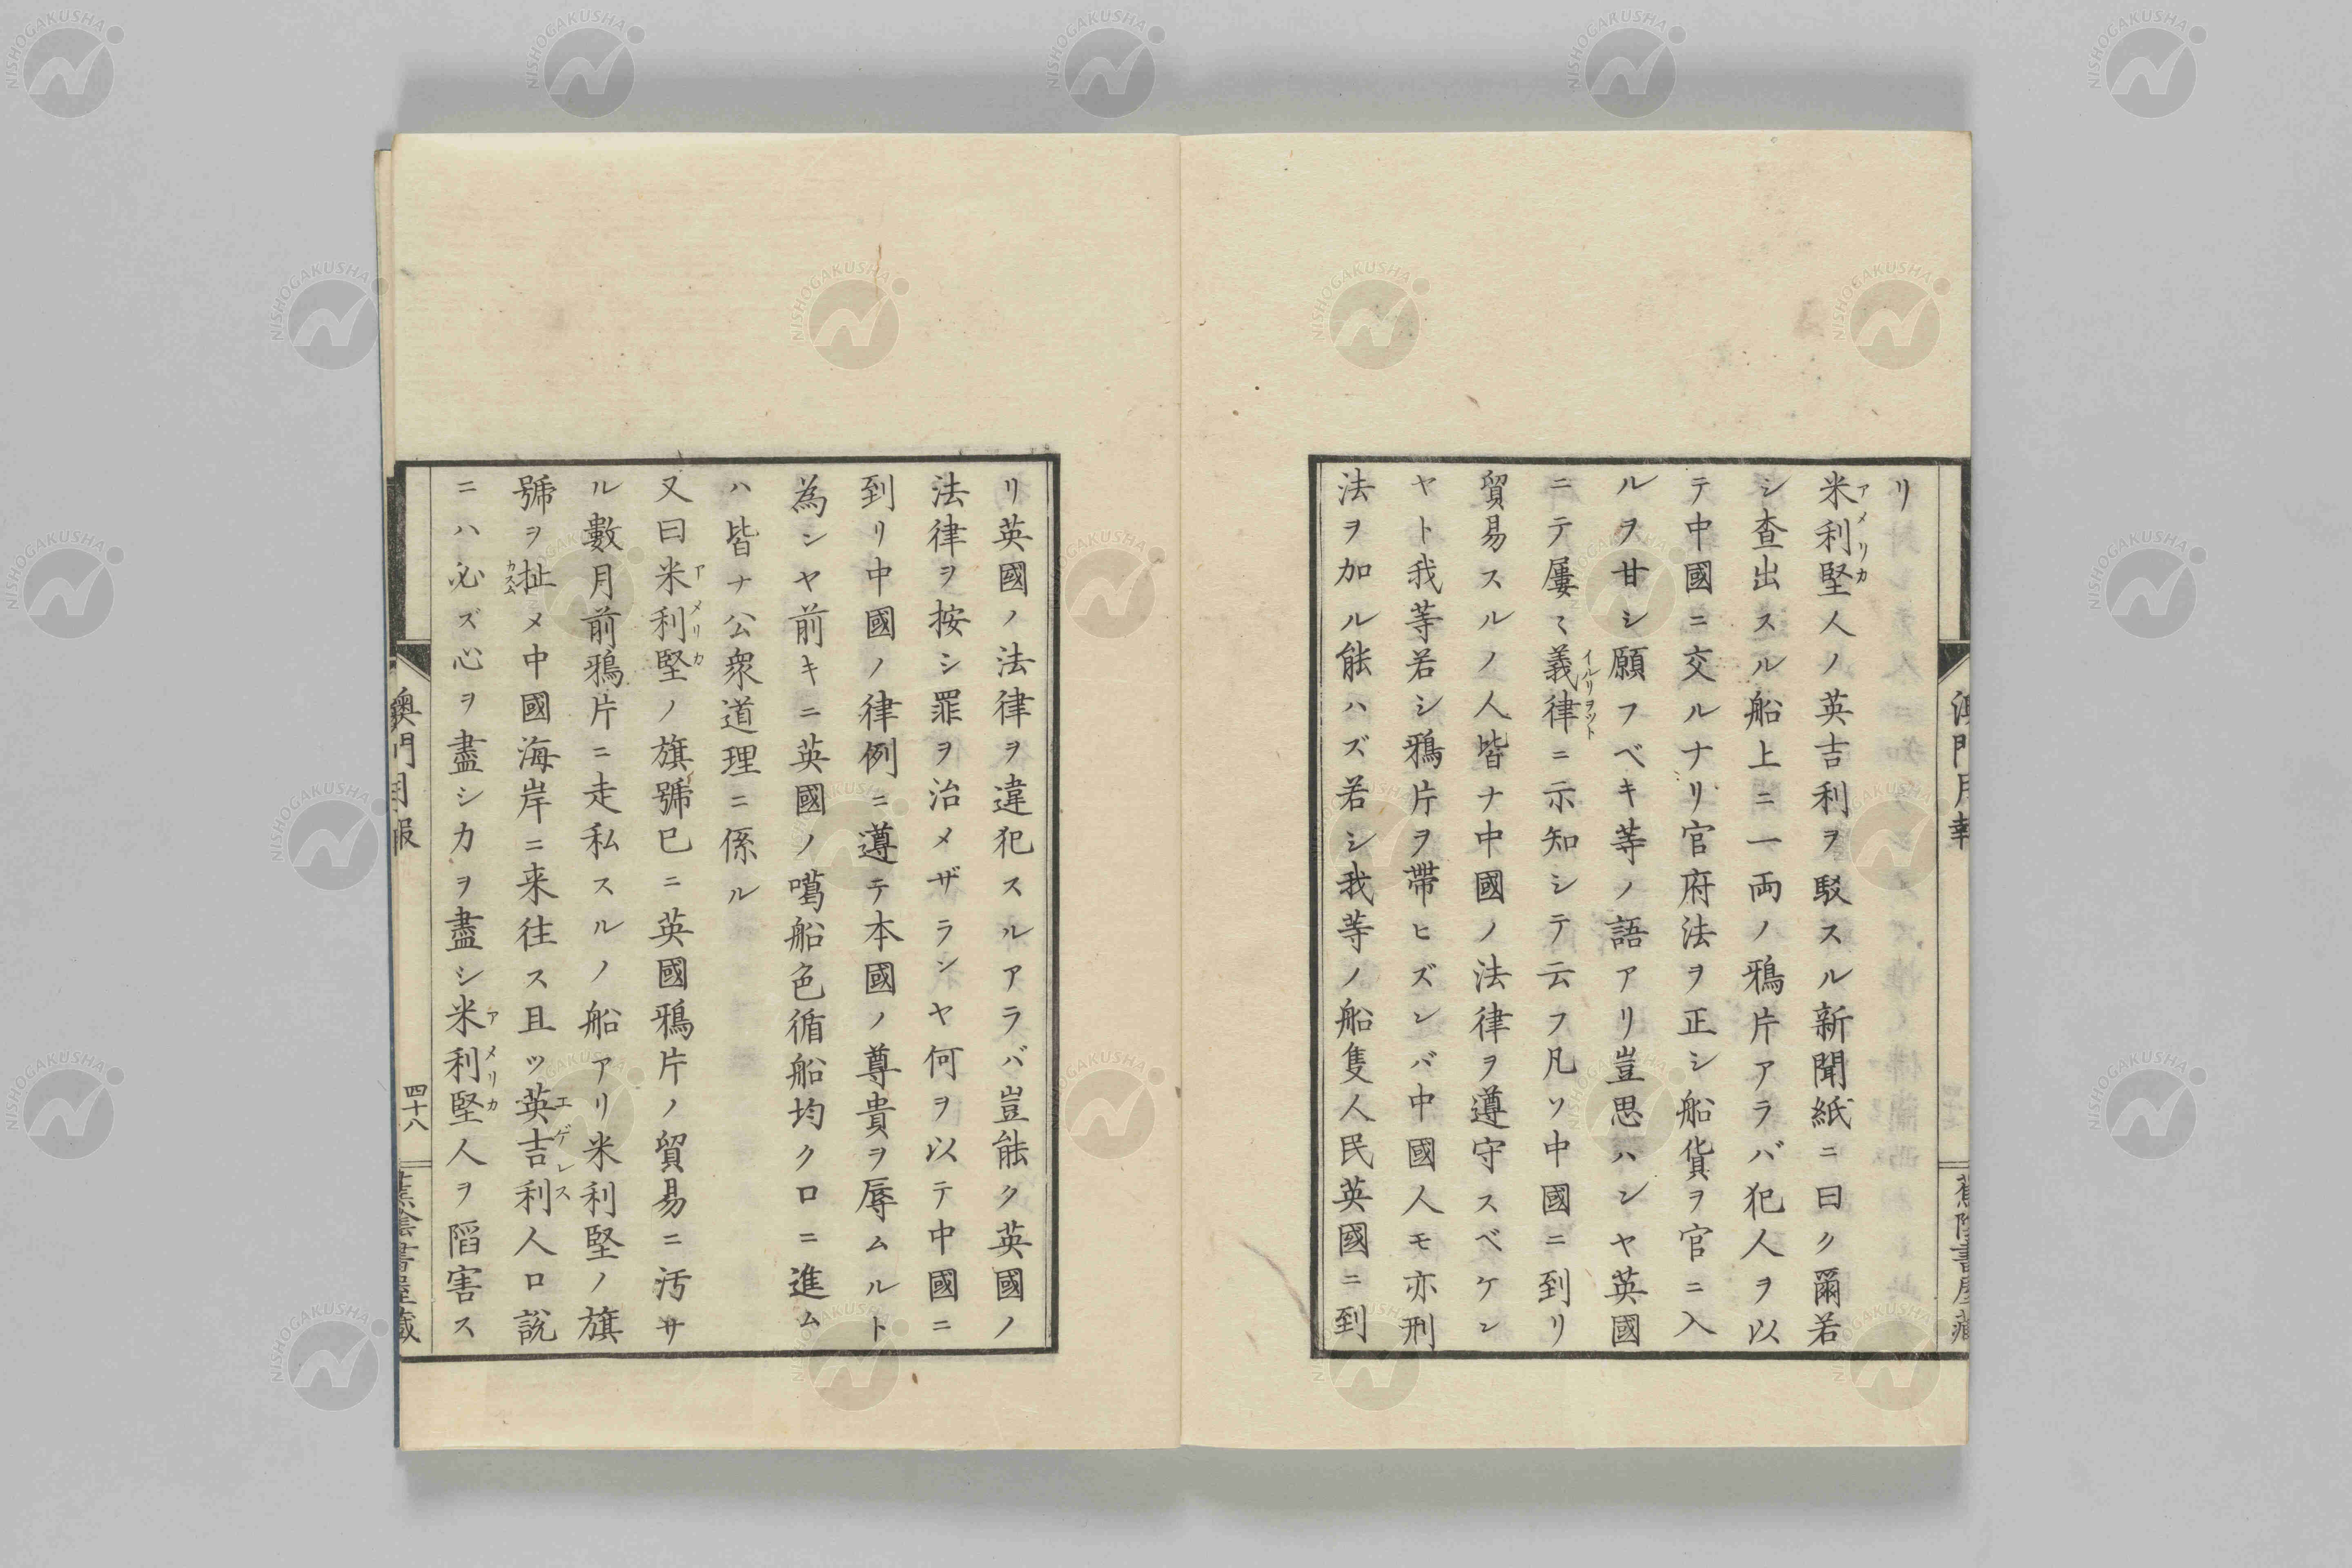 リ
米利堅人ノ英吉利ヲ駁スル新聞紙ニ曰ク爾若
アメリカ
シ査出スル船上ニ一両ノ鴉片アラバ犯人ヲ以
テ中國ニ交ルナリ官府法ヲ正シ船貨ヲ官ニ入
ルヲ甘シ願フベキ等ノ語アリ豈思ハンヤ英國
ニテ屢〻義律ニ示知シテ云フ凡ソ中國ニ到リ
イルリヲット
貿易スルノ人皆ナ中國ノ法律ヲ遵守スベケン
ヤト我等若シ鴉片ヲ帶ヒズンバ中國人モ亦刑
法ヲ加ル能ハズ若シ我等ノ船隻人民英國ニ到
リ英國ノ法律ヲ違犯スルアラバ豈能ク英國ノ
法律ヲ按シ罪ヲ治メザランヤ何ヲ以テ中國ニ
到リ中國ノ律例ニ遵テ本國ノ尊貴ヲ辱ムルト
為ンヤ前キニ英國ノ噶船色循船均ク口ニ進ム
ハ皆ナ公衆道理ニ係ル
又曰米利堅ノ旗號已ニ英國鴉片ノ貿易ニ汚サ
アメリカ
ル數月前鴉片ニ走私スルノ船アリ米利堅ノ旗
號ヲ扯メ中國海岸ニ来往ス且ツ英吉利人口説
カスム
エゲレス
ニハ必ズ心ヲ盡シカヲ盡シ米利堅人ヲ陷害ス
アメリカ
澳門月報
四十八
蕉陰書屋藏